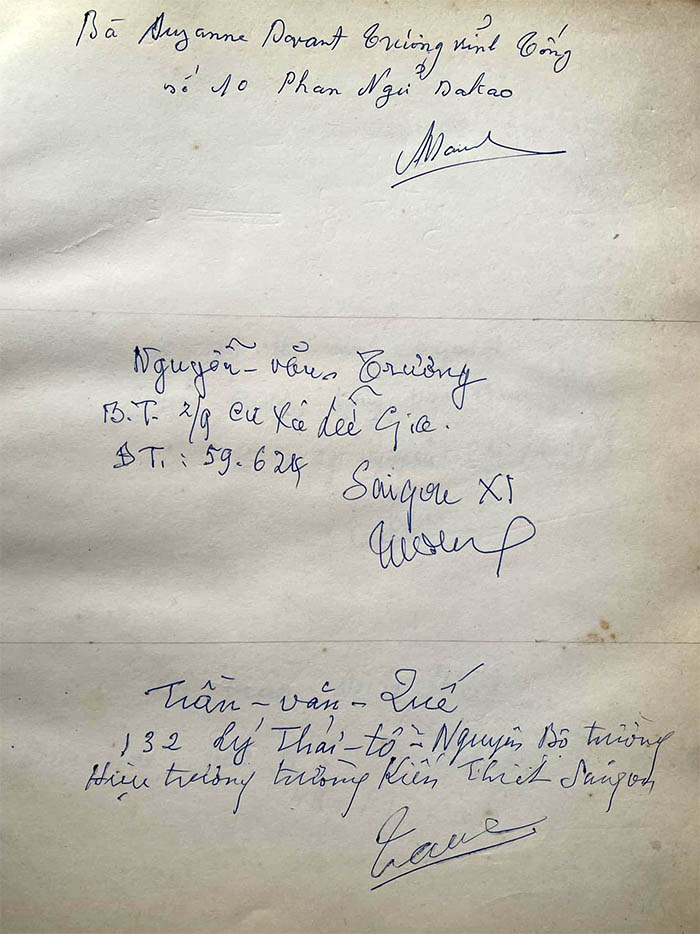 Bà Suzanne Dovant Trương Vĩnh Tống
số 10 Phan Ngữ Dakao
Nguyễn-văn Trường
B.T. 2/9 Cư Xá Lữ Gia.
ĐT.: 59.624
Saigon XI
Trần-văn-Quế
132 Lý Thái-tổ - Nguyên Bộ trưởng
Hiệu trưởng trường Kiến Thiết Saigon